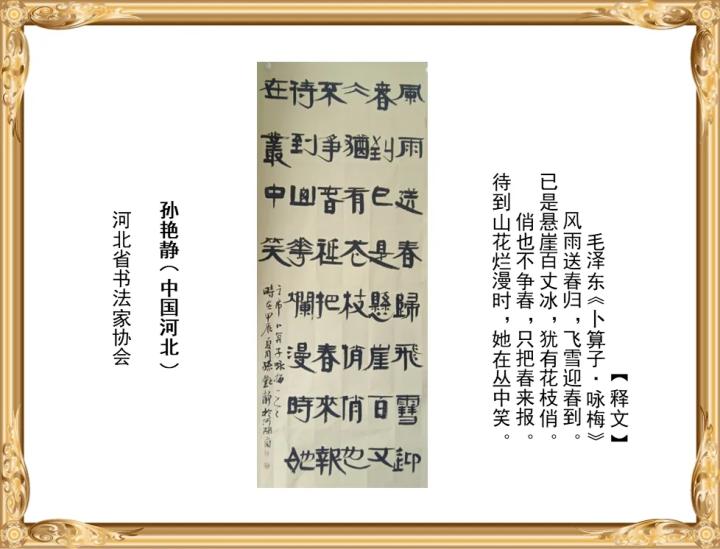 【释文】
毛泽东《卜算子·咏梅》
风雨送春归，飞雪迎春到。
已是悬崖百丈冰，犹有花枝俏。
俏也不争春，只把春来报。
待到山花烂漫时，她在丛中笑。
風雨送春歸飛雪迎
春到已是懸崖百丈
仌猶有花枝俏俏也
不爭春祗把春來報
待到山華爛漫時她
在叢中笑
主席卜算子咏梅
時在甲辰夏月孫艷静
孙艳静（中国河北）
河北省书法家协会